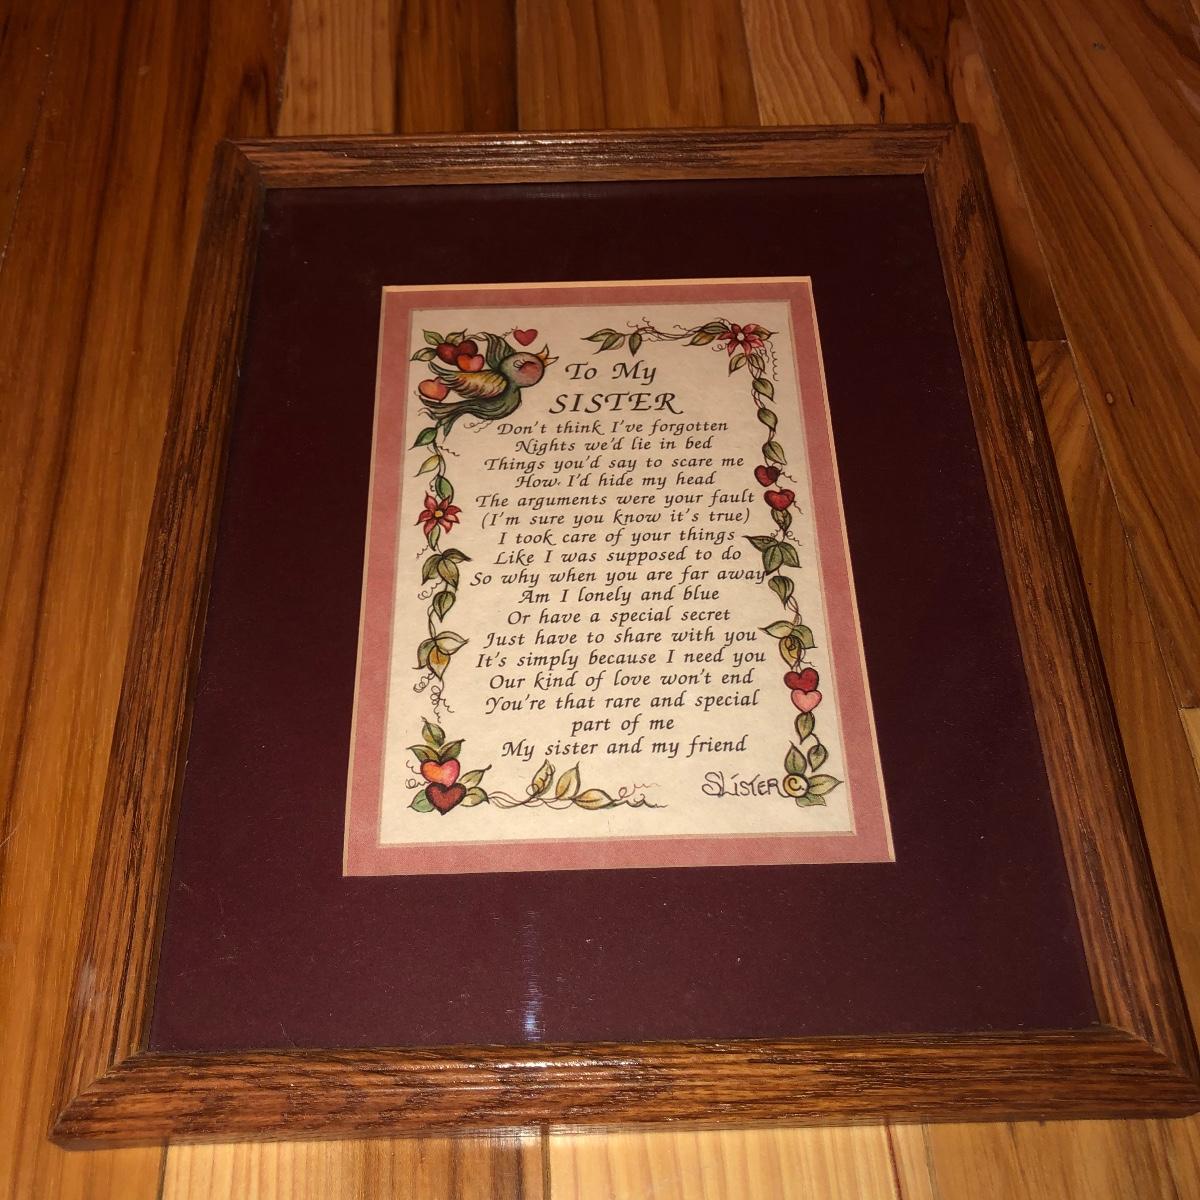 To My
SISTER
Don't think I've forgotten
Nights we'd lie in bed
Things you'd say to scare me
How I'd hide my head
The arguments were your fault
(I'm sure you know it's true)
I took care of your things
Like I was supposed to do
So why when you are far away
Am I lonely and blue
Or have a special secret
Just have to share with you
It's simply because I need you
Our kind of love won't end
You're that rare and special
part of me
My sister and my friend
SLiSTER ©